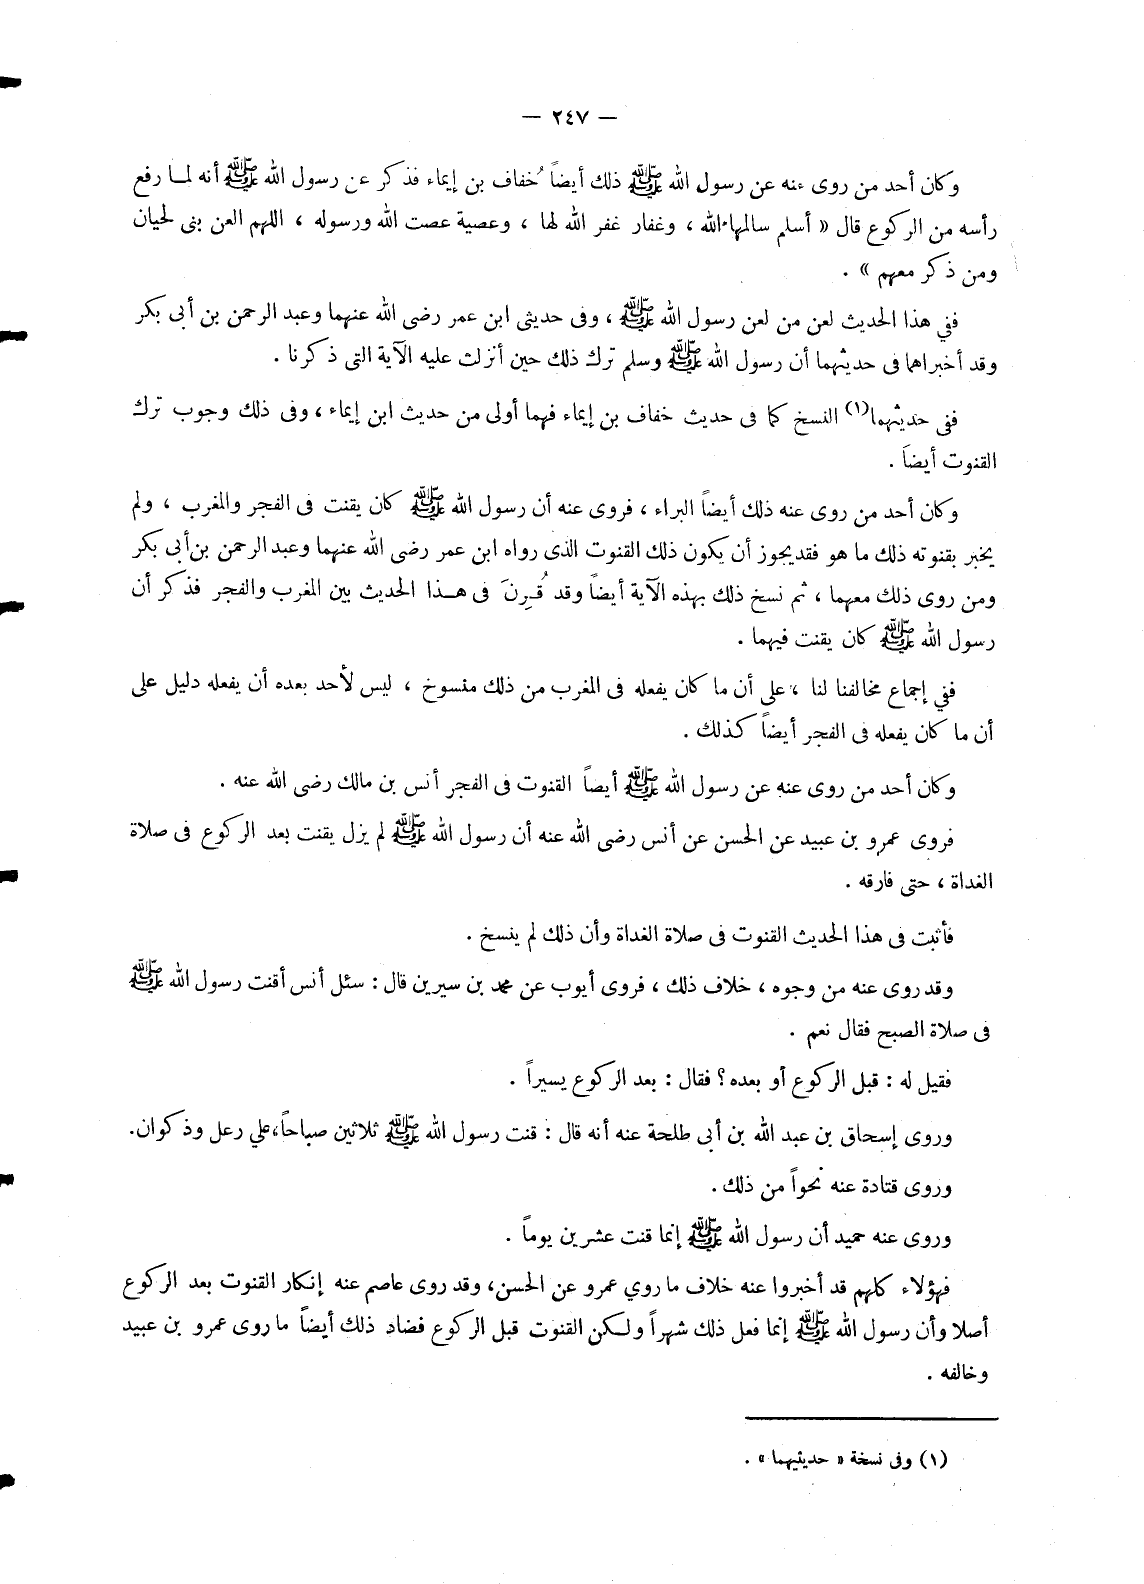 — ٢٤٧ —
وكان أحد من روى عنه عن رسول الله ﷺ ذلك أيضاً خُفاف بن إيماء فذكر عن رسول الله ﷺ أنه لمـا رفع
رأسه من الركوع قال « أسلم سالمها الله ، وغفار غفر الله لها ، وعصية عصت الله ورسوله ، اللهم العن بنى لحيان
ومن ذكر معهم » .
ففي هذا الحديث لعن من لعن رسول الله ﷺ ، وفى حديثى ابن عمر رضى الله عنهما وعبد الرحمن بن أبى بكر
وقد أخبراهما فى حديثهما أن رسول الله ﷺ وسلم ترك ذلك حين أنزلت عليه الآية التى ذكرنا .
ففى حديثهما(١) النسخ كما فى حديث خفاف بن إيماء فهما أولى من حديث ابن إيماء ، وفى ذلك وجوب ترك
القنوت أيضاَ .
وكان أحد من روى عنه ذلك أيضاً البراء ، فروى عنه أن رسول الله ﷺ كان يقنت فى الفجر والمغرب ، ولم
يخبر بقنوته ذلك ما هو فقديجوز أن يكون ذلك القنوت الذى رواه ابن عمر رضى الله عنهما وعبد الرحمن بن أبى بكر
ومن روى ذلك معهما ، ثم نسخ ذلك بهذه الآية أيضاً وقد قُـرِنَ فى هـذا الحديث بين المغرب والفجر فذكر أن
رسول الله ﷺ كان يقنت فيهما .
ففي إجماع مخالفنا لنا ، على أن ما كان يفعله فى المغرب من ذلك منسوخ ، ليس لأحد بعده أن يفعله دليل على
أن ما كان يفعله فى الفجر أيضاً كذلك .
وكان أحد من روى عنه عن رسول الله ﷺ أيضاً القنوت فى الفجر أنس بن مالك رضى الله عنه .
فروى عمرو بن عبيد عن الحسن عن أنس رضى الله عنه أن رسول الله ﷺ لم يزل يقنت بعد الركوع فى صلاة
الغداة ، حتى فارقه .
فأثبت فى هذا الحديث القنوت فى صلاة الغداة وأن ذلك لم ينسخ .
وقد روى عنه من وجوه ، خلاف ذلك ، فروى أيوب عن محمد بن سيرين قال : سئل أنس أقنت رسول الله ﷺ
فى صلاة الصبح فقال نعم .
فقيل له : قبل الركوع أو بعده ؟ فقال : بعد الركوع يسيراً .
وروى إسحاق بن عبد الله بن أبى طلحة عنه أنه قال : قنت رسول الله ﷺ ثلاثين صباحاً، علي رعل وذكوان.
وروى قتادة عنه نحواً من ذلك .
وروى عنه حميد أن رسول الله ﷺ إنما قنت عشرين يوماً .
فهؤلاء كلهم قد أخبروا عنه خلاف ما روي عمرو عن الحسن، وقد روى عاصم عنه إنكار القنوت بعد الركوع
أصلا وأن رسول الله ﷺ إنما فعل ذلك شهراً ولكن القنوت قبل الركوع فضاد ذلك أيضاً ما روى عمرو بن عبيد
وخالفه .
(١) وفى نسخة « حديثيهما » .